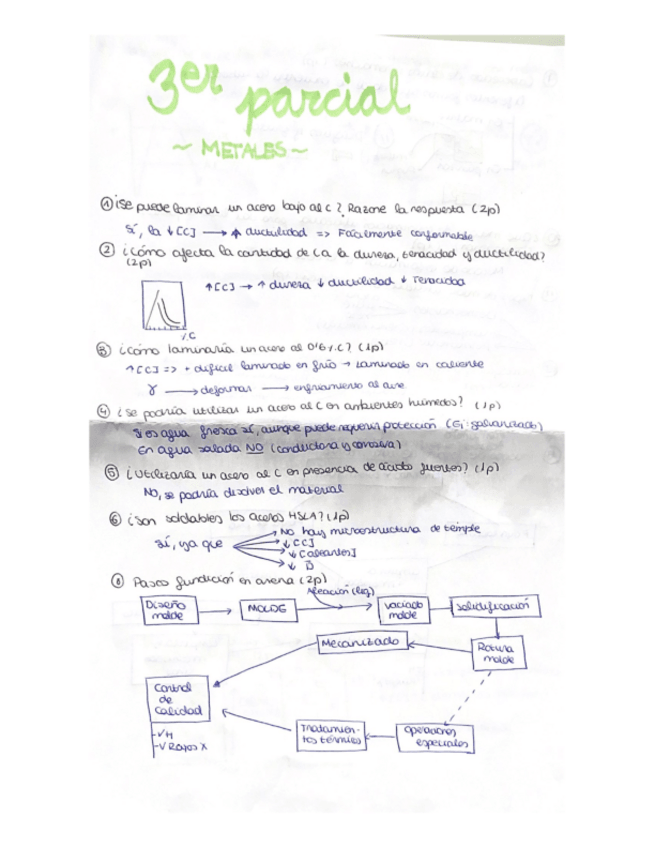 3er parcial
~ METALES ~
① ¿Se puede laminar un acero bajo al C? Razone la respuesta (2p)
Sí, la ↓[C] → ↑ ductilidad => Facilmente conformable
② ¿Cómo afecta la cantidad de C a la dureza, tenacidad y ductilidad?
(2p)
↑[C] → ↑ dureza ↓ ductilidad ↓ tenacidad
%C
③ ¿Cómo laminaría un acero al 0'6%C? (1p)
↑[C] => + dificil laminado en frío → Laminado en caliente
γ → deformar → enfriamiento al aire
④ ¿Se podría utilizar un acero al C en ambientes húmedos? (1p)
Si es agua fresca sí, aunque puede requerir protección (Ej: galvanizado)
En agua salada NO (conductora y corrosiva)
⑤ ¿Utilizaría un acero al C en presencia de ácidos fuertes? (1p)
No, se podría disolver el material
⑥ ¿Son soldables los aceros HSLA? (1p)
Sí, ya que
No hay microestructura de temple
↓[C]
↓[Aleantes]
↓
Pasos fundición en arena (2p)
Aleación (liq)
Diseño molde
MOLDE
Vaciado molde
Solidificación
Mecanizado
Rotura molde
Control de Calidad
Tratamien-tos térmicos
Operaciones especiales
- VH
- V Rayos X